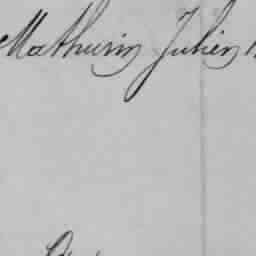 Mathurin Julien